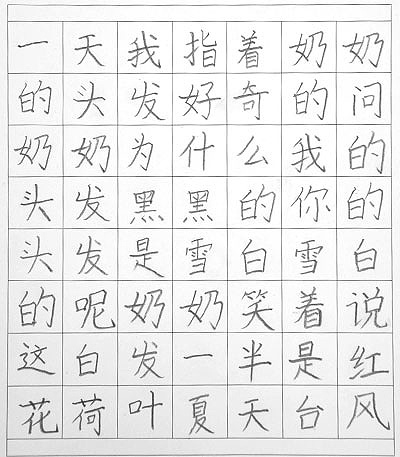 一天我指着奶奶
的头发好奇的问
奶奶为什么我的
头发黑黑的你的
头发是雪白雪白
的呢奶奶笑着说
这白发一半是红
花荷叶夏天台风